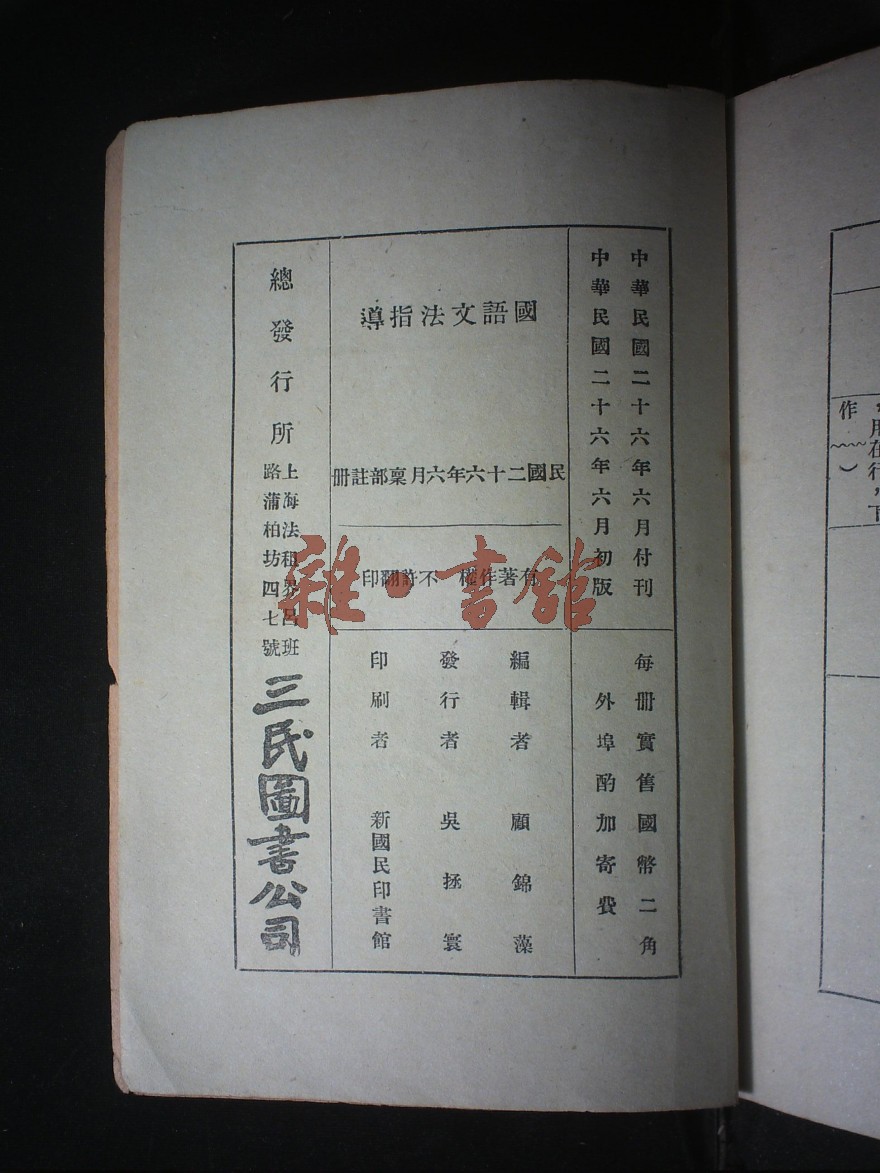 中華民國二十六年六月付刊
中華民國二十六年六月初版
每冊實售國幣二角
外埠酌加寄費
國語文法指導
民國二十六年六月稟部註冊
有著作權 不許翻印
編輯者 顧錦藻
發行者 吳拯寰
印刷者 新國民印書館
總發行所
上海法租界呂班
路蒲柏坊四七號
三民圖書公司
雜·書館
用在行，下
作
）